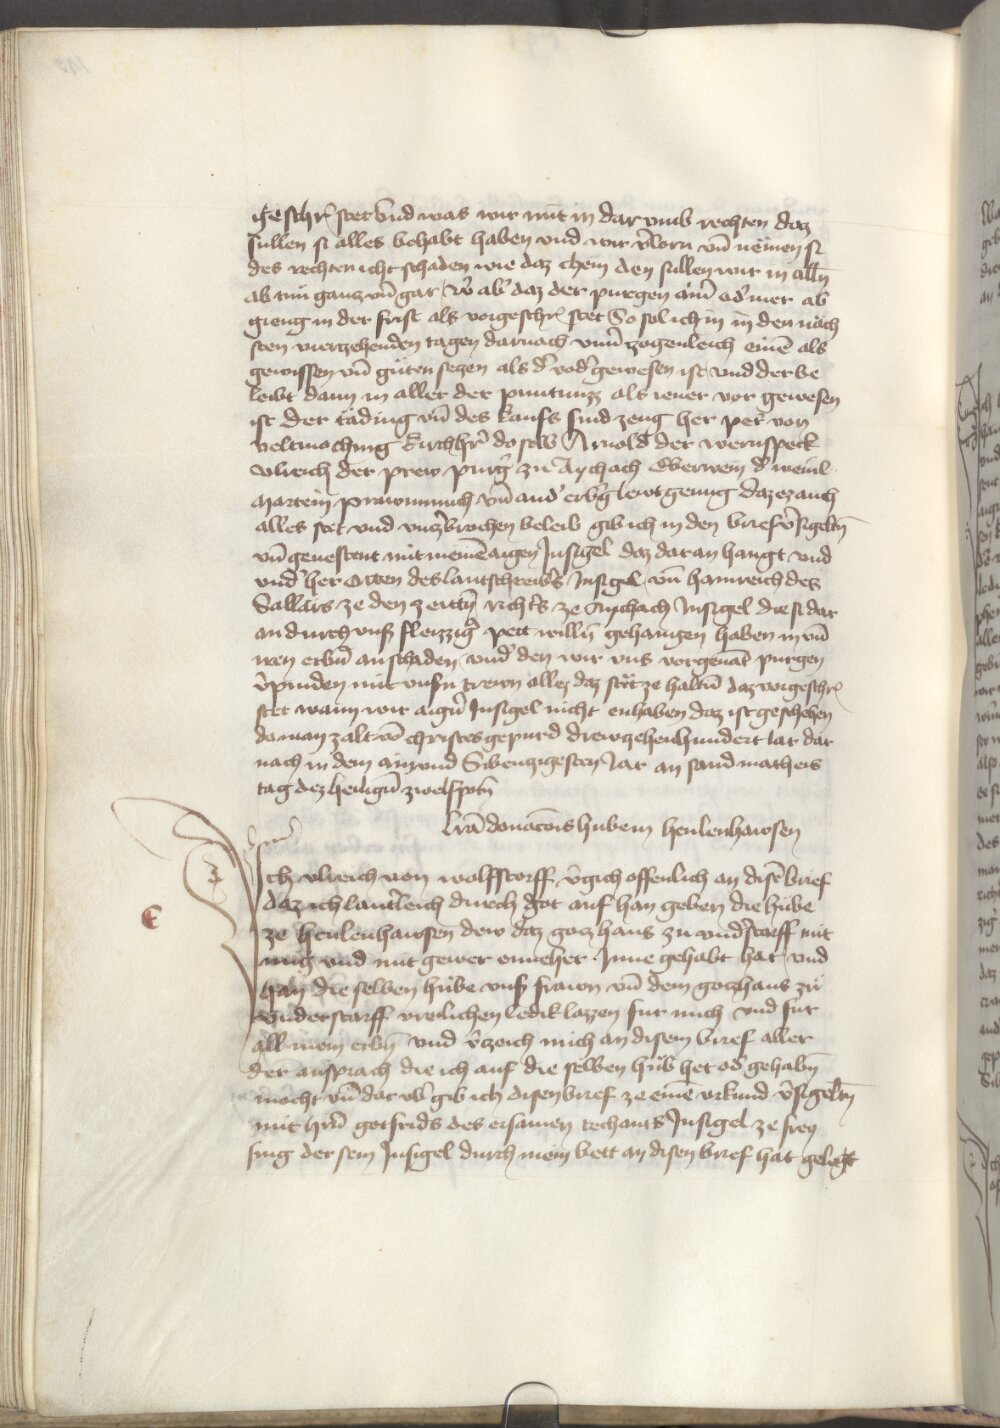 geschrˀ stet Und was wir mit in dar vmb rechten daz
sullen si alles behabt haben vnd wir v̄lorn vn̄ nemen si
des rechten icht schaden wie daz chem den sullen wir in alln̄
ab tun ganz vn̄ gar Wˀ abˀ daz der purgen ainˀ odˀ mer ab
gieng in der frist als vorgeschrˀ stet So sol ich in in den nach
sten viertzehenden tagen darnach vnuˀzogenleich einē als
gewissen vn̄ guten sezen als dˀ vodˀ gewesen ist vnd der be
leibt dann in aller der puntnuzz als iener vor gewesen
ist Der tading vn̄ des kaufs sind zeug her peter von
veltmoching kirchhrˀ do selb Arnold der wernspeck
vlreich der prew purgˀ zu Aychach Eberwein dˀ weinl
Martein prawnmuch vn̄ andˀ erbˀg lewt genug Daz ez auch
alles stet vnd vnzˀbrochen beleib gib ich in den brief vˀsigeltn̄
vn̄ geuestent mit meinē aigen Insigel daz daran hangt vnd
vndˀ her otten des lantschreibˀs Insigel vn̄ hainreich dez
Sallars ze den zeittn̄ richtˀs ze Aychach Insigel die si dar
an durch vnsˀ fleizzigˀ pett willn̄ gehangen haben in vn̄
iren erbn̄ an schaden vndˀ den wir vns vorgenāt purgen
v̄pinden mit vnsˀn trewn allez daz stet ze haltn̄ daz vorgeschrˀ
stet wann wir aigner Insigel nicht enhaben daz ist geschehen
do man zalt vō christes gepurd drewzehenhundert iar dar
nach in dem ain vnd Sibenzigesten Jar an sand matheis
tag dez heiligen zwelfpotn̄
Lrā donacōis hube in heulenhawsen
Ich vlreich von wolfstorff v̄gich offenlich an disē brief
daz ich lautˀleich durch got auf han geben die hube
ze heulenhawsen dew daz gozhaus zu vndˀstorff mit
nutz vnd mit gewer enneher Inne gehabt hat vnd
han die selben hube vnsˀ frawn vn̄ dem gozhaus zu
Vnderstorff vreilichen ledik lazzen fur mich vnd fur
all mein erbn̄ vnd v̄zeich mich an disem brief aller
der ansprach die ich auf die selben hub het odˀ gehabn̄
mocht vn̄ dar vbˀ gib ich disen brief ze einē vrkund v̄sigeltn̄
mit hrˀn gotfrids des ersamen techants Insigel ze frey
sing der sein Insigel durch mein bett an disen brief hat gelegt